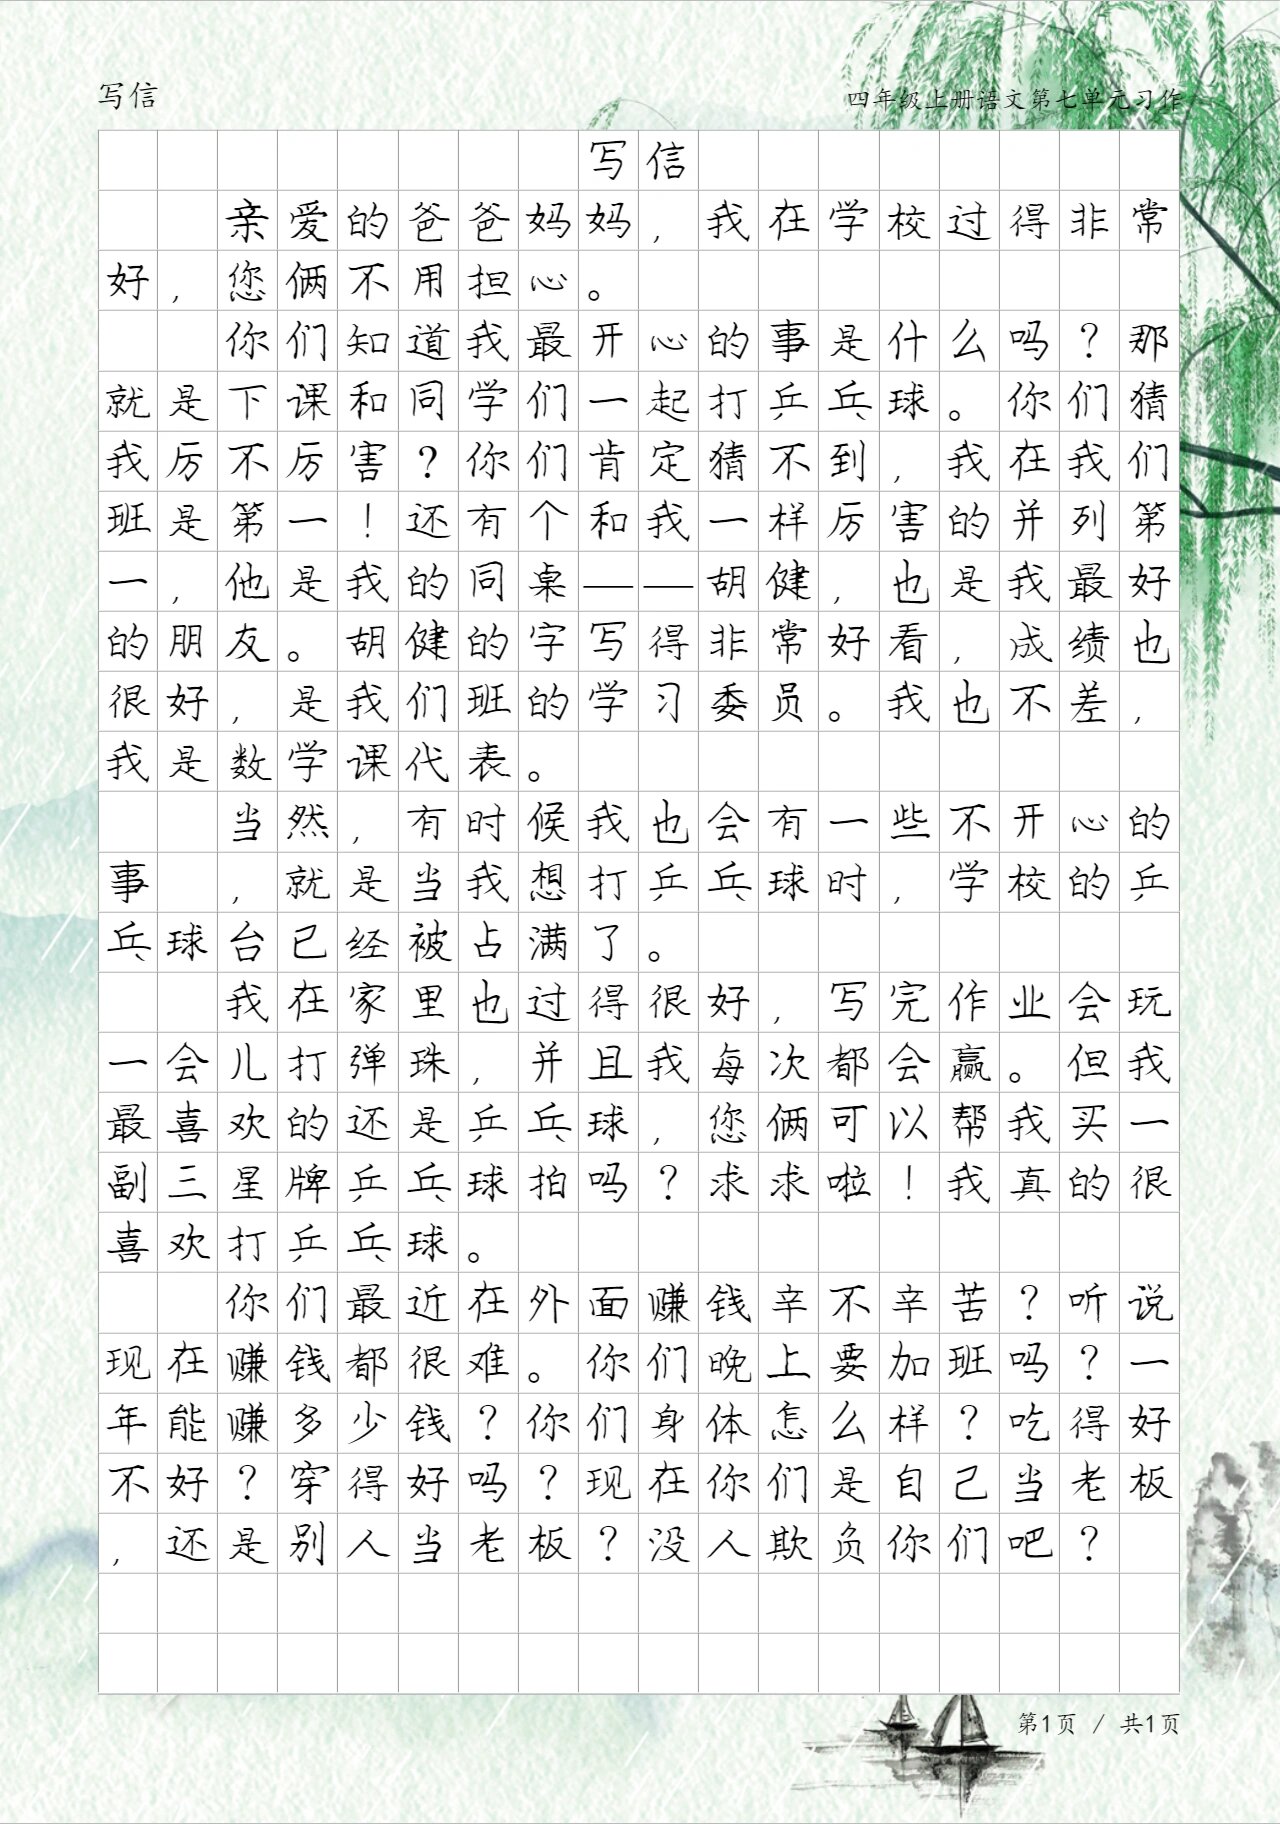 写信
四年级上册语文第七单元习作
写信
亲爱的爸爸妈妈，我在学校过得非常
好，您俩不用担心。
你们知道我最开心的事是什么吗？那
就是下课和同学们一起打乒乓球。你们猜
我厉不厉害？你们肯定猜不到，我在我们
班是第一！还有个和我一样厉害的并列第
一，他是我的同桌——胡健，也是我最好
的朋友。胡健的字写得非常好看，成绩也
很好，是我们班的学习委员。我也不差，
我是数学课代表。
当然，有时候我也会有一些不开心的
事 ，就是当我想打乒乓球时，学校的乒
乓球台已经被占满了。
我在家里也过得很好，写完作业会玩
一会儿打弹珠，并且我每次都会赢。但我
最喜欢的还是乒乓球，您俩可以帮我买一
副三星牌乒乓球拍吗？求求啦！我真的很
喜欢打乒乓球。
你们最近在外面赚钱辛不辛苦？听说
现在赚钱都很难。你们晚上要加班吗？一
年能赚多少钱？你们身体怎么样？吃得好
不好？穿得好吗？现在你们是自己当老板
，还是别人当老板？没人欺负你们吧？
第1页 / 共1页